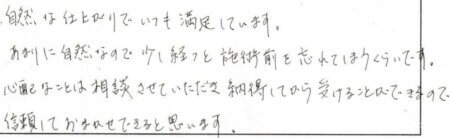 自然な仕上がりでいつも満足しています。
あまりに自然なので少し経つと施術前を忘れてしまうくらいです。
心配なことは相談させていただき納得してから受けることができるので
信頼しておまかせできると思います。